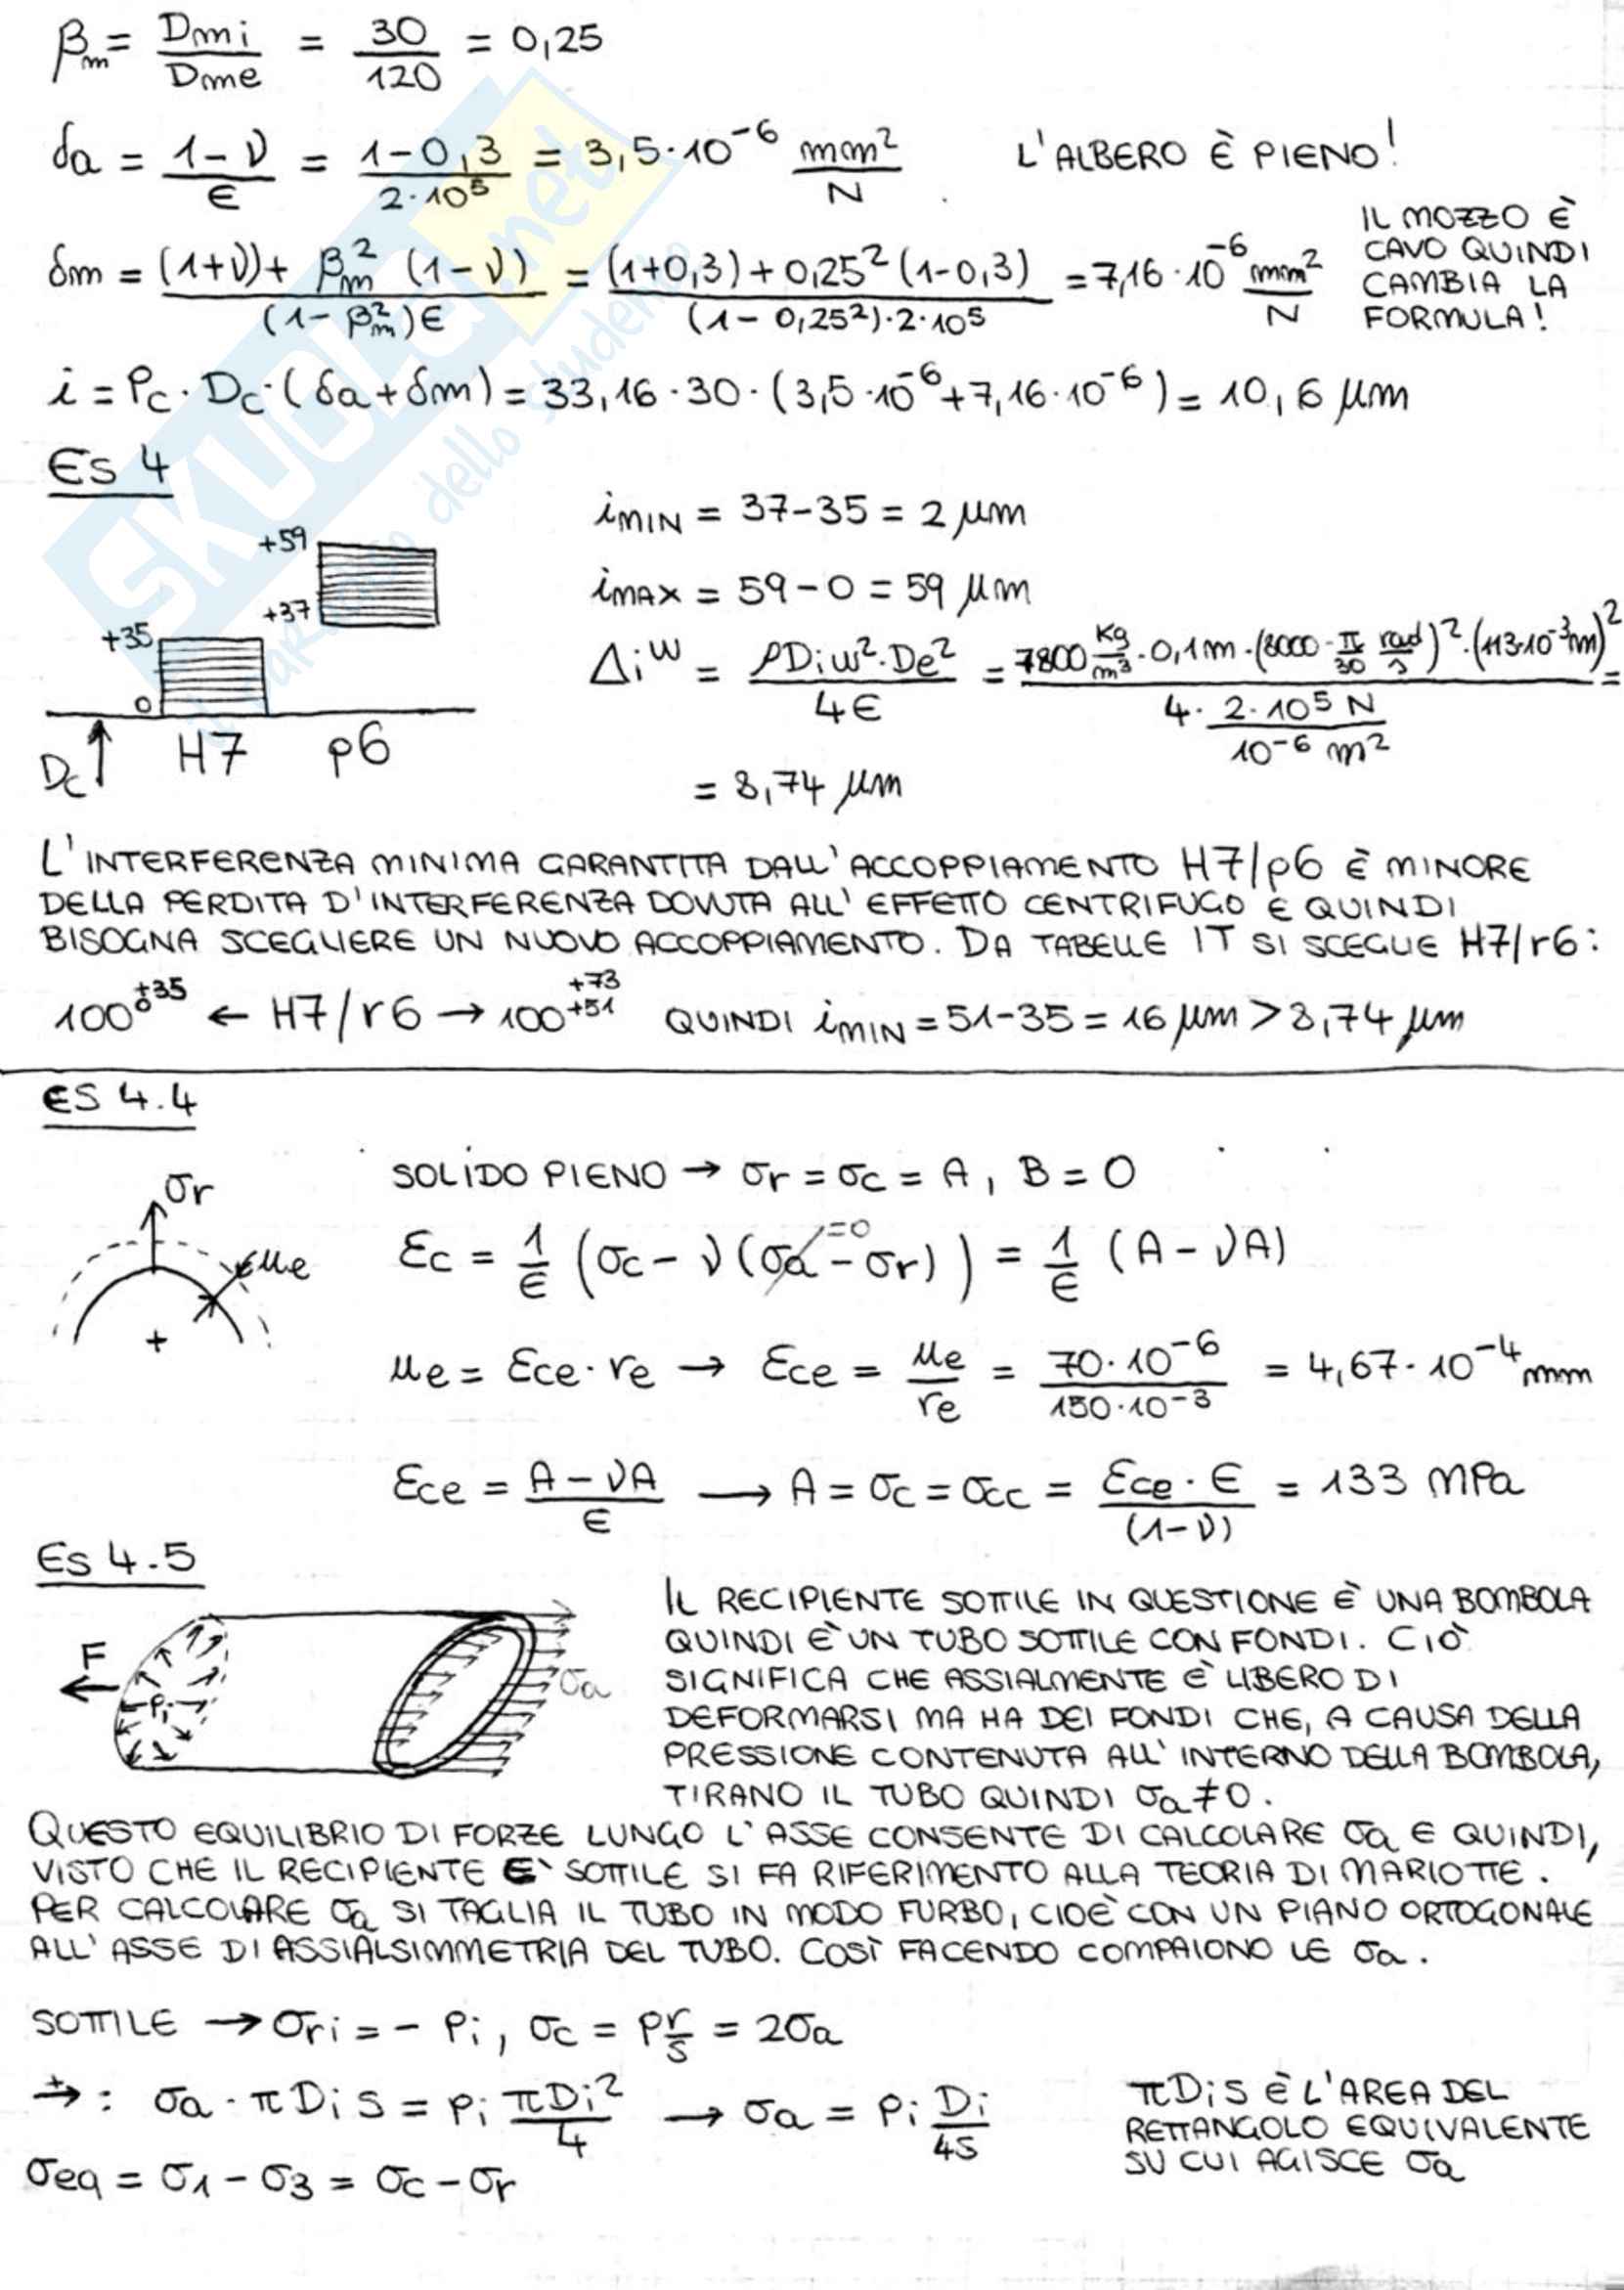 βm = Dmi / Dme = 30 / 120 = 0,25
δa = (1-ν) / E = (1-0,3) / (2·10⁵) = 3,5·10⁻⁶ mm² / N L'ALBERO È PIENO!
δm = ((1+ν) + βm² (1-ν)) / ((1-βm²)E) = ((1+0,3) + 0,25² (1-0,3)) / ((1-0,25²)·2·10⁵) = 7,16·10⁻⁶ mm² / N
IL MOZZO È
CAVO QUINDI
CAMBIA LA
FORMULA!
i = Pc · Dc · (δa + δm) = 33,16 · 30 · (3,5·10⁻⁶ + 7,16·10⁻⁶) = 10,6 μm
ES 4
iMIN = 37-35 = 2 μm
+59
+37
iMAX = 59-0 = 59 μm
+35
0
Δiʷ = ρDiw²·De² / 4E = 7800 kg/m³ · 0,1m · (8000 · π/30 rad/s)² · (113·10⁻³m)² / (4 · 2·10⁵ N / 10⁻⁶ m²) =
Dc H7 p6
= 8,74 μm
L'INTERFERENZA MINIMA GARANTITA DALL'ACCOPPIAMENTO H7/p6 È MINORE
DELLA PERDITA D'INTERFERENZA DOVUTA ALL'EFFETTO CENTRIFUGO E QUINDI
BISOGNA SCEGLIERE UN NUOVO ACCOPPIAMENTO. DA TABELLE IT SI SCEGLIE H7/r6:
100 +35 0 ← H7/r6 → 100 +73 +51 QUINDI iMIN = 51-35 = 16 μm > 8,74 μm
ES 4.4
SOLIDO PIENO → σr = σc = A, B = 0
σr
μe
+
εc = 1/E (σc - ν(σa - σr)) = 1/E (A - νA)
=0
μe = εce · re → εce = μe / re = 70·10⁻⁶ / 150·10⁻³ = 4,67·10⁻⁴ mm
εce = (A - νA) / E → A = σc = σcc = εce · E / (1-ν) = 133 MPa
ES 4.5
F
Pi
σa
IL RECIPIENTE SOTTILE IN QUESTIONE È UNA BOMBOLA
QUINDI È UN TUBO SOTTILE CON FONDI. CIÒ
SIGNIFICA CHE ASSIALMENTE È LIBERO DI
DEFORMARSI MA HA DEI FONDI CHE, A CAUSA DELLA
PRESSIONE CONTENUTA ALL'INTERNO DELLA BOMBOLA,
TIRANO IL TUBO QUINDI σa ≠ 0.
QUESTO EQUILIBRIO DI FORZE LUNGO L'ASSE CONSENTE DI CALCOLARE σa E QUINDI,
VISTO CHE IL RECIPIENTE È SOTTILE SI FA RIFERIMENTO ALLA TEORIA DI MARIOTTE.
PER CALCOLARE σa SI TAGLIA IL TUBO IN MODO FURBO, CIOÈ CON UN PIANO ORTOGONALE
ALL'ASSE DI ASSIALSIMMETRIA DEL TUBO. COSÌ FACENDO COMPAIONO LE σa.
SOTTILE → σri = - Pi, σc = P r/s = 2σa
→+ : σa · πDi s = Pi πDi² / 4 → σa = Pi Di / 4s
πDis È L'AREA DEL
RETTANGOLO EQUIVALENTE
SU CUI AGISCE σa
σeq = σ1 - σ3 = σc - σr
SKUOLA.net
dello studente